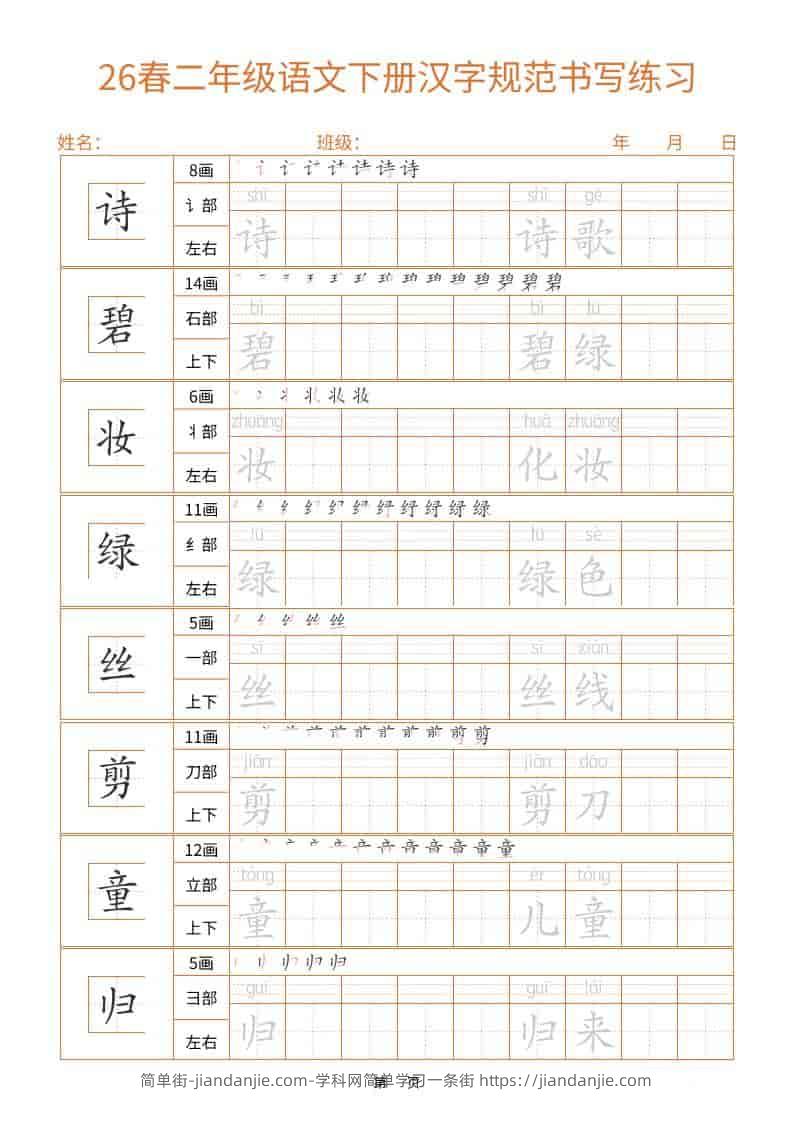 26春二年级语文下册汉字规范书写练习
姓名: 班级: 年 月 日
诗 8画
讠部 shī shī gē
左右 诗 诗 歌
碧 14画
石部 bì bì lǜ
上下 碧 碧 绿
妆 6画
丬部 zhuāng huà zhuāng
左右 妆 化 妆
绿 11画
纟部 lǜ lǜ sè
左右 绿 绿 色
丝 5画
一部 sī sī xiàn
上下 丝 丝 线
剪 11画
刀部 jiǎn jiǎn dāo
上下 剪 剪 刀
童 12画
立部 tóng ér tóng
上下 童 儿 童
归 5画
彐部 guī guī lái
左右 归 归 来
简单街-jiandanjie.com-学科网简单学习一条街 https://jiandanjie.com
第 页